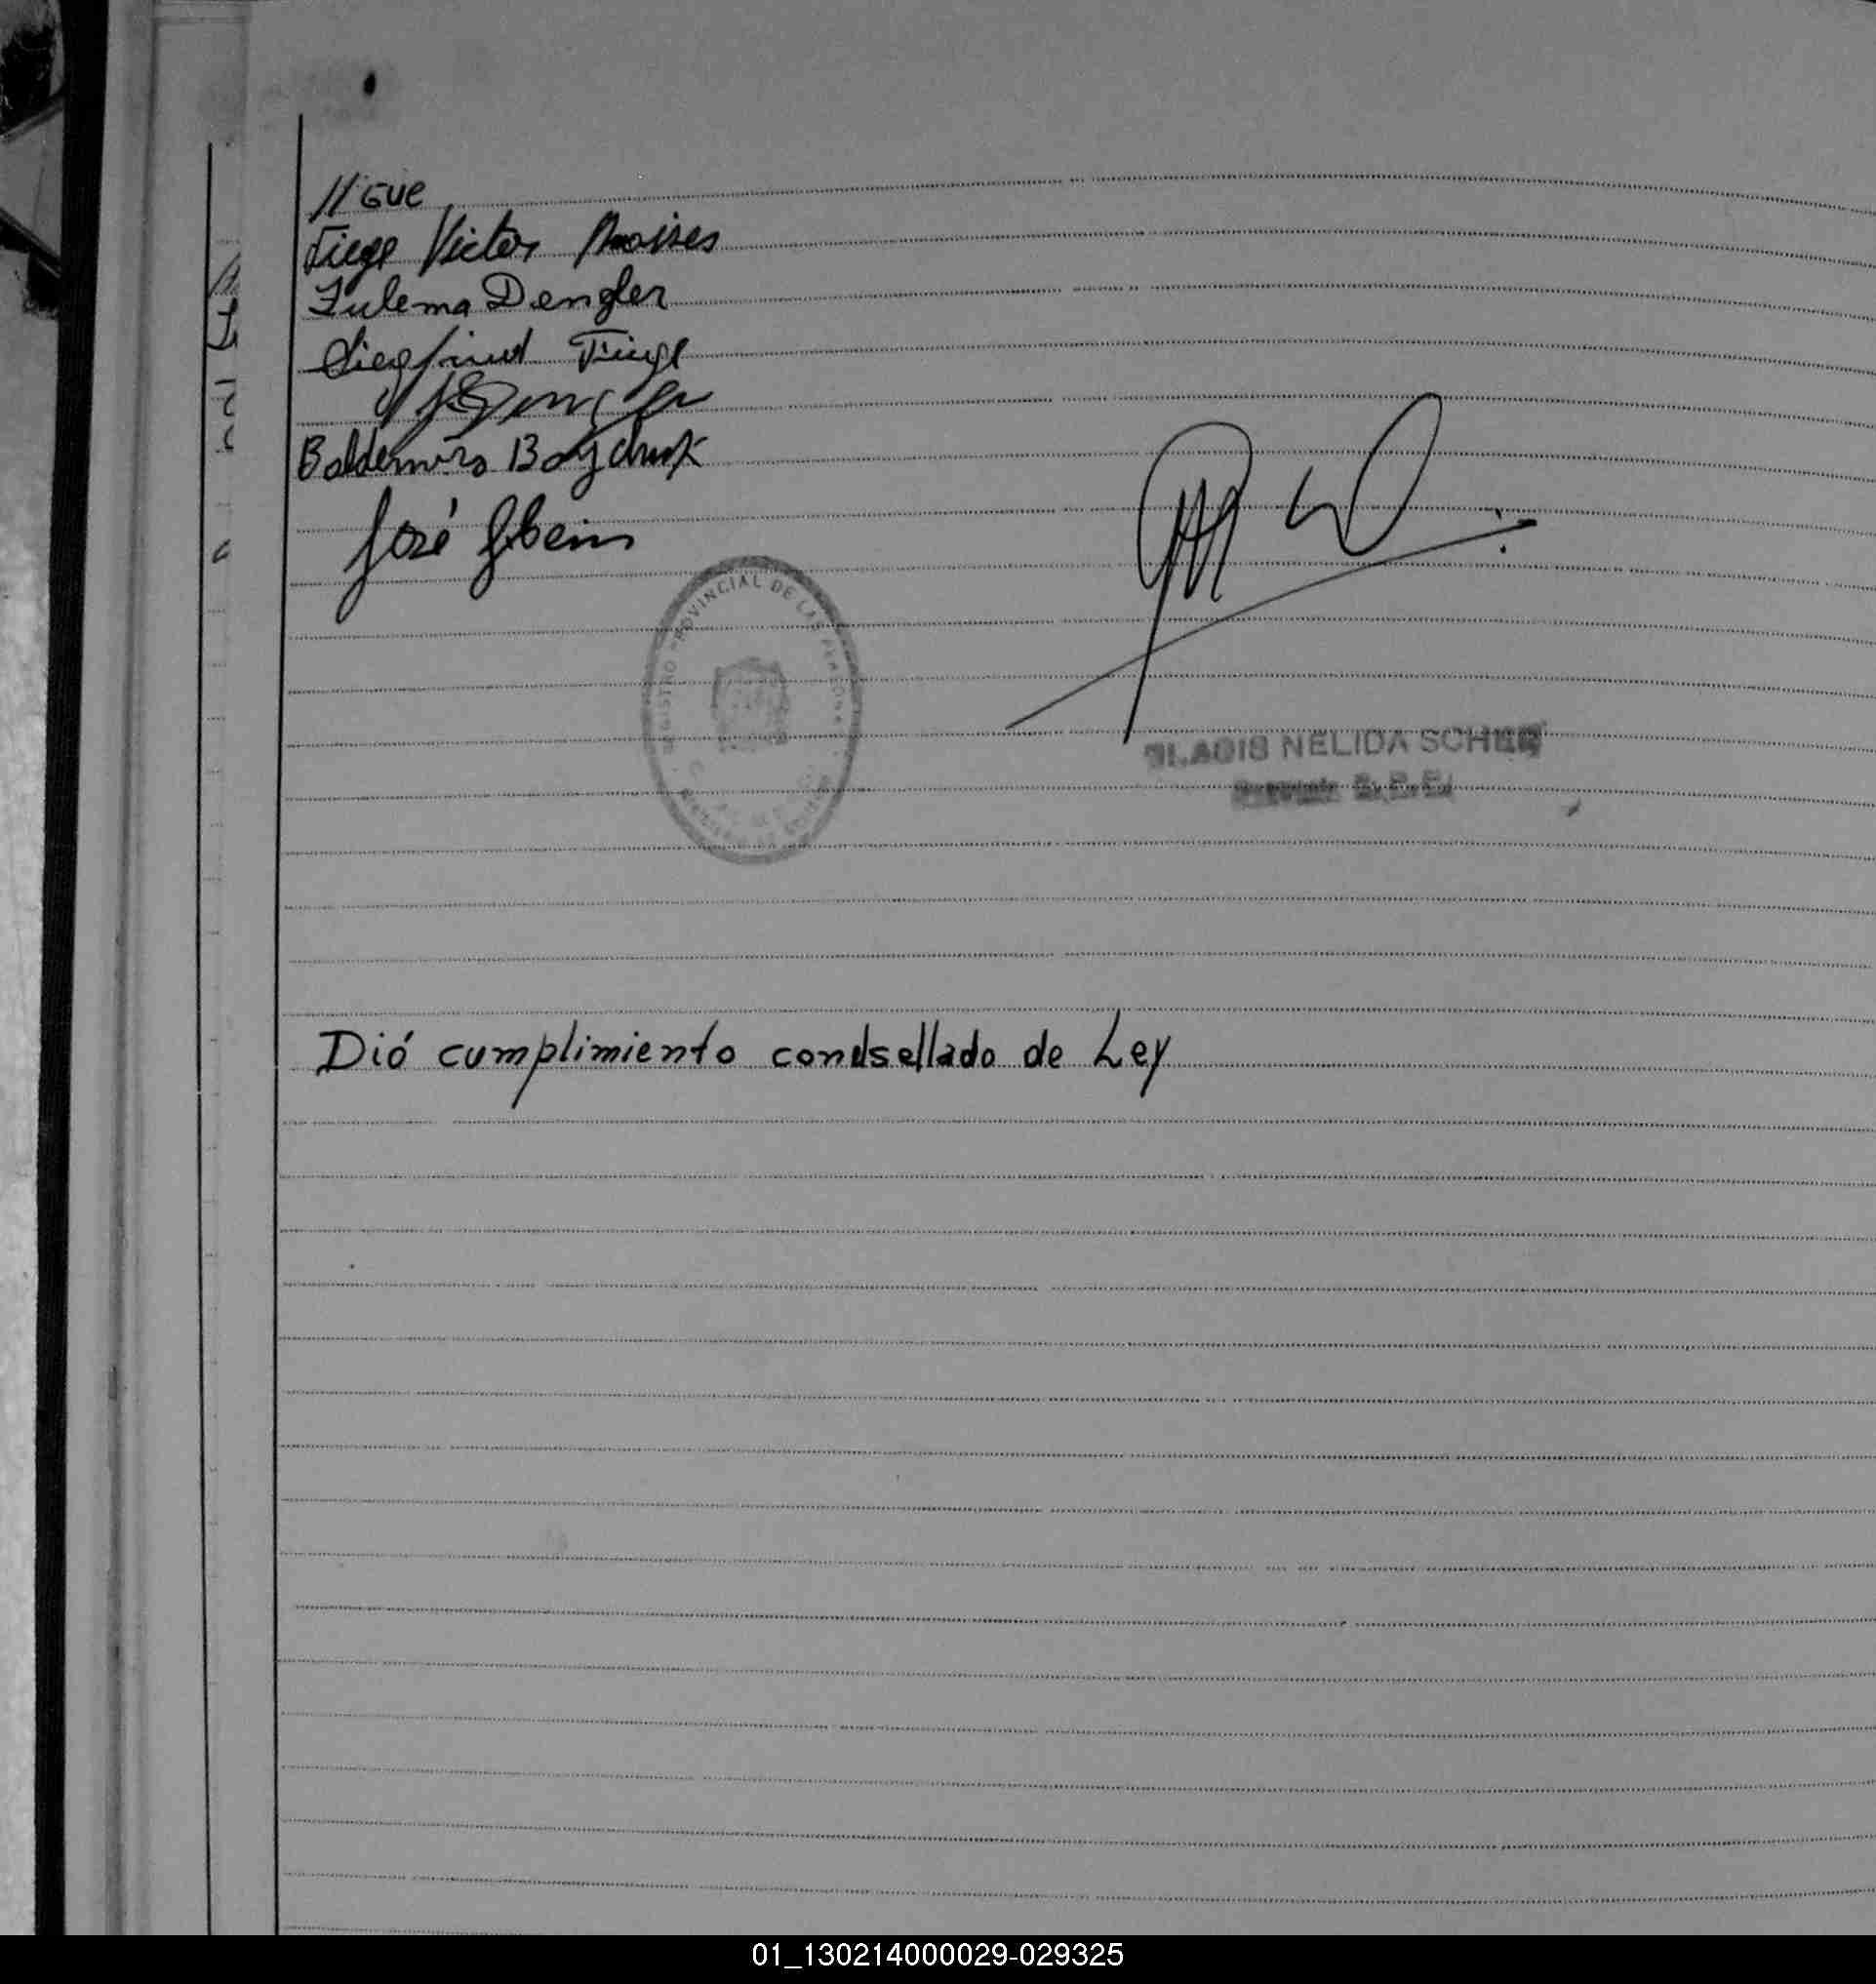 //GUE
Tiege Victor Moises
Zulema Dengler
Siegfrid Tiege
Dengler
Baldemiro Boychuk
José
REGISTRO PROVINCIAL DE LAS PERSONAS
GLADIS NELIDA SCHER
Dió cumplimiento con el sellado de Ley
01_130214000029-029325